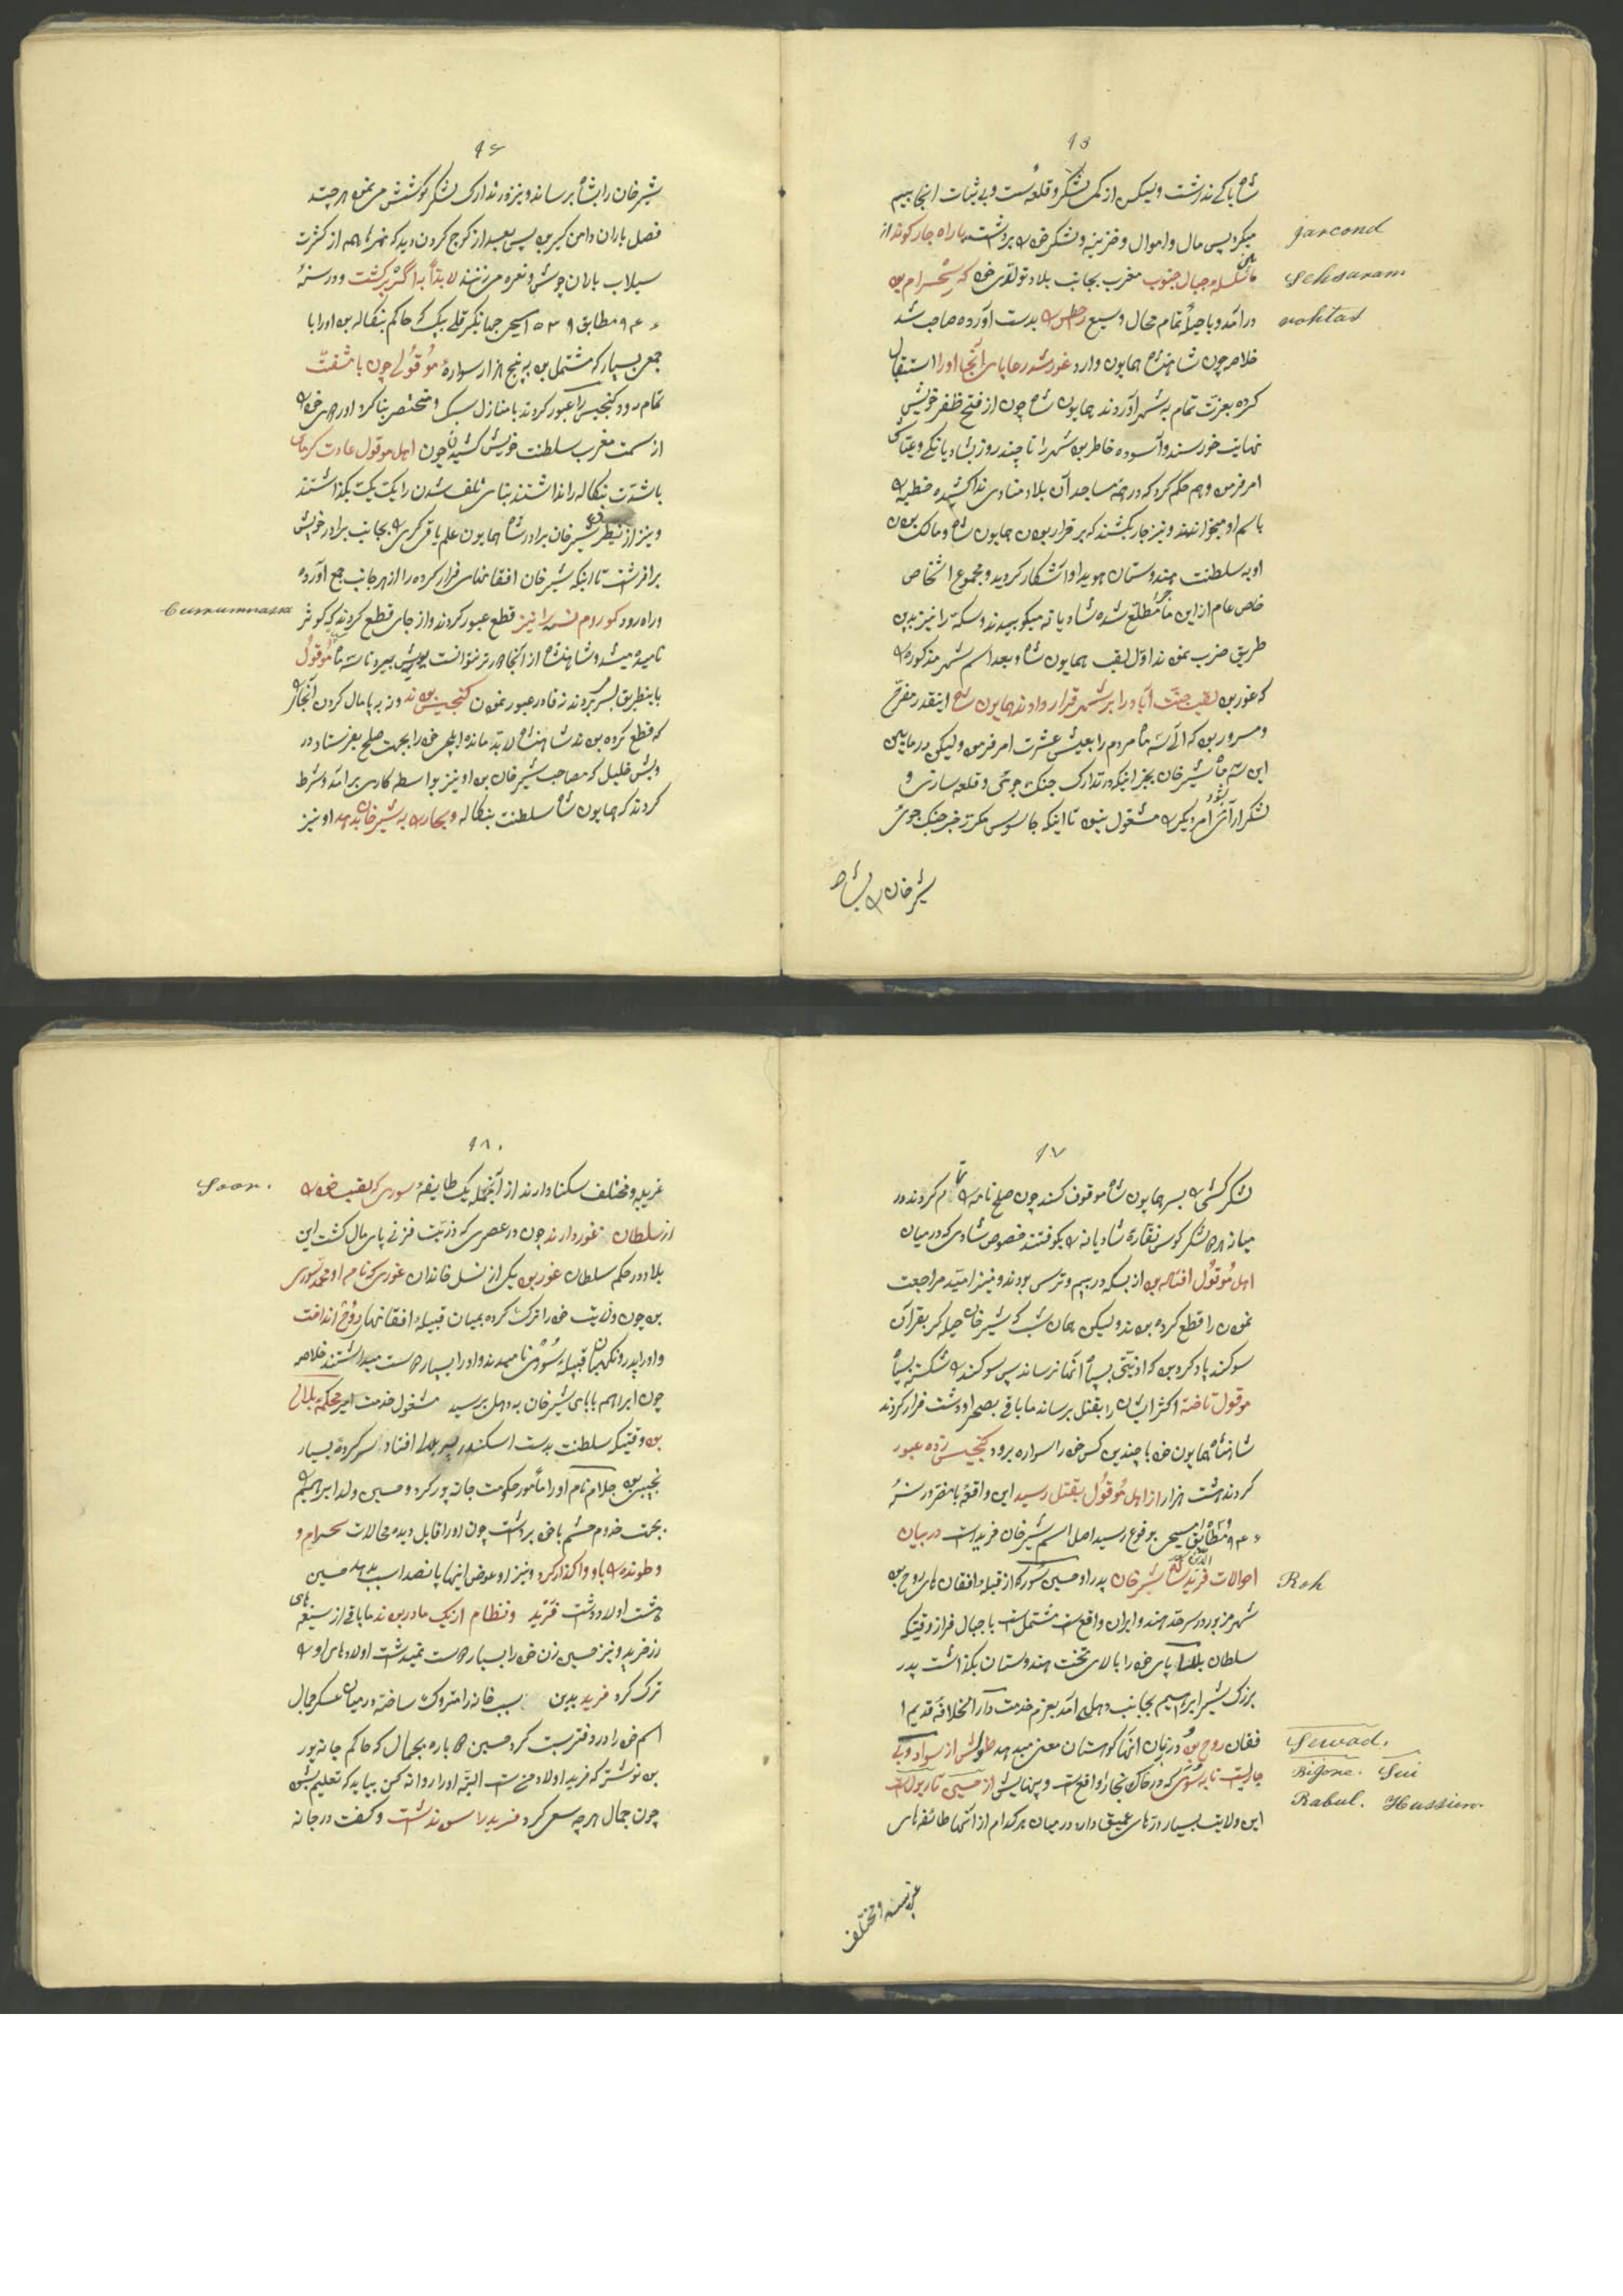 ۹۵
شاه باکی نداشت ولیکن از کمی لشکر و قلعه سست و بی ثبات اینجا بیم
میکرد پس مال و اموال و خزینه و لشکر خود برداشت با راه جارکوند از
jarcond
سلسله جبال جنوب مغرب بجانب بلاد تولدی خود که سحسرام بود
Sehsaram
درآمد و با حیله تمام محال وسیع رحطس بدست آورده صاحب شد
rohtas
خلاصه چون شاهنشاه همایون وارد غور شد رعایای آنجا او را استقبال
کرده بعزت تمام به شهر آوردند همایون شاه چون از فتح ظفر خویش
نهایت خورسند و آسوده خاطر بود شهر را تا چند روز بشادیانگی و
امر فرمود هم حکم کرد که در همه مساجد آن بلاد منادی ندا کشیده خطبه
باسم او میخواندند و نیز جار بکشند که برقرار بودن همایون شاه و مالک بودن
او به سلطنت هندوستان هویدا و آشکار گردید و مجموع اشخاص
خاص عام از این ماجرا مطلع شده شادیانه میکوبیدند و سکه را نیز بدین
طریق ضرب نمودند اول لقب همایون شاه و بعد اسم شهر مذکوره
که غور بود لقب جنت آباد را بر شهر قرار دادند همایون شاه اینقدر مفرح
و مسرور بود که الی سه ماه مردم را بعیش عشرت امر فرمود ولیکن در مابین
این سه ماه شیرخان بجز اینکه در تدارک جنک جوئی و قلعه سازی و
لشکر آرائی بود امر دیگری مشغول نبود تا اینکه جاسوس مکرر خبر جنک جوئی
شیرخان بشاه
۹۶
شیرخان را بشاه برساند و نیز در تدارک لشکر کوشش می نمود هر چند
فصل باران دامن گیر بود پس بعد از کوچ کردن دید که نهرها همه از کثرت
سیلاب باران جوش و نعره میزنند لابداً به اگره برگشت و در سنهٔ
۹۴۶ مطابق ۱۵۳۹ مسیحی جهانگیر قلی بیک که حاکم بنکاله بود او را با
جمعی بسیار که مشتمل بود به پنج هزار سواره موقولی چون با مشقت
تمام رود کنجیس را عبور کردند با منازل سبک و مختصر بنا کرد
از سمت مغرب سلطنت خویش کشیدن چون اهل موقول عادت گرمای
باشدت بنکاله را نداشتند بنای تلف شدن را یک یک بگذاشتند
و نیز از شیرخان برادر شاه همایون علم یاقی گری بجانب برادر خویش
برافراشت تا اینکه شیرخان افقانهای فرار کرده را از هر جانب جمع آورده
و راه رود کوروم نسه را نیز قطع عبور کردند و از جای قطع کردند که کوثر
Curumnassa
نامیده میشد و شاهنشاه از آنجا دورتر نتوانست پیش ببرد تا سه ماه موقول
باینطریق بسر بردند نه قادر عبور نمودن کنجیس بودند و نه بر پامال کردن آنجا
که قطع کرده بودند شاهنشاه لابد مانده ایلچی خود را بجهت صلح بفرستاد در
ویش خلیل که مصاحب شیرخان بود او نیز بواسطه کاری برآمد و شرط
کردند که همایون شاه سلطنت بنکاله و بحار به شیرخان بدهد او نیز
۹۷
لشکرکشی بسر همایون شاه موقوف کند چون صلح نامه تمام کردند در
میانه هر دو لشکر کوس نقاره شادیانه بکوفتند خصوص شادی که در میان
اهل موقول افتاده بود از بسکه در بیم و ترس بودند و نیز امید مراجعت
نمودن را قطع کرده بودند ولیکن همان شب که شیرخان حیله گر بقرآن
سوگند یاد کرده بود که اذیتی بسپاه آنها نرساند پس سوگند شکسته بسپاه
موقول تاخته اکثر ایشان را بقتل برساند مابقی بصحرا و دشت فرار کردند
شاهنشاه همایون خود با چندین کس خود را سواره برود کنجیس زده عبور
کردند هشت هزار از اهل موقول بقتل رسید این واقعه بامضر در سنهٔ
۹۴۶ و مطابق مسیحی بوقوع رسید اصل اسم شیرخان فرید است در بیان
احوالات فرید شیرخان پدر او حسین سور که از قبیله افقان های روح بود
Roh
شهر مزبور در سرحد هند و ایران واقع است مشتمل است با جبال فراز وقتیکه
سلطان پای خود را بالای تخت هندوستان بگذاشت پدر
بزرگ شیر ابراهیم بجانب دهلی آمد بعزم خدمت دارالخلافه قدیم ا
فقان روح بود در زبان آنها کوهستان معنی میدهد طولش از سواد و بی
Sewad.
جاریست تا به سوی که در خاک بخار واقع است و پهنایش از حسین تا ربول است
Bijore. Sui
Rabul. Hussien.
این ولایت بسیار دزه های عمیق دارد در میان هر کدام از آنها طائفه های
غریبه و مختلف
۹۸
غریبه و مختلف سکنا دارند از آنجمله یک طایفه سوری که لقب خود
Soor.
از سلطان غور دارند چون در عصری که ذریت غزنی پای مال گشت این
بلاد در حکم سلطان غور بود یکی از نسل خاندان غوری که نام او محمد سوری
بود چون ولایت خود را ترک کرده بمیان قبیله افقانهای روح انداخت
و او را پدر و نگهبان قبیله سوری نامیدند و او را بسیار دوست میداشتند خلاصه
چون ابراهیم بابای شیرخان به دهلی برسید مشغول خدمت امیر محکمه
بود وقتیکه سلطنت بدست اسکندر پسر افتاد سرکرده بسیار
نجیبی بود جلام نام او را مأمور حکومت جانه پور کرد و حسین ولد ابراهیم
بجهت خدم حشم با خود برداشت چون او را قابل دیده محالات سحرام و
وطونده باو واگذار کرد و نیز او عوض اینها پانصد اسب بدهد حسین
هشت اولاد داشت فرید و نظام از یک مادر بودند مابقی از صیغه های
زرخرید و نیز حسین زن خود را بسیار دوست نمیداشت اولادهای او
ترک کرد فرید بدین سبب خانه را متروک ساخته در میان عسکر جمال
اسم خود را در دفتر ثبت کرد حسین دوباره بجمال که حاکم جانه پور
بود نوشت که فرید اولاد من است البته او را روانه کن بیاید که تعلیم
چون جمال هر چه سعی کرد فرید راضی نداشت و گفت در جانه